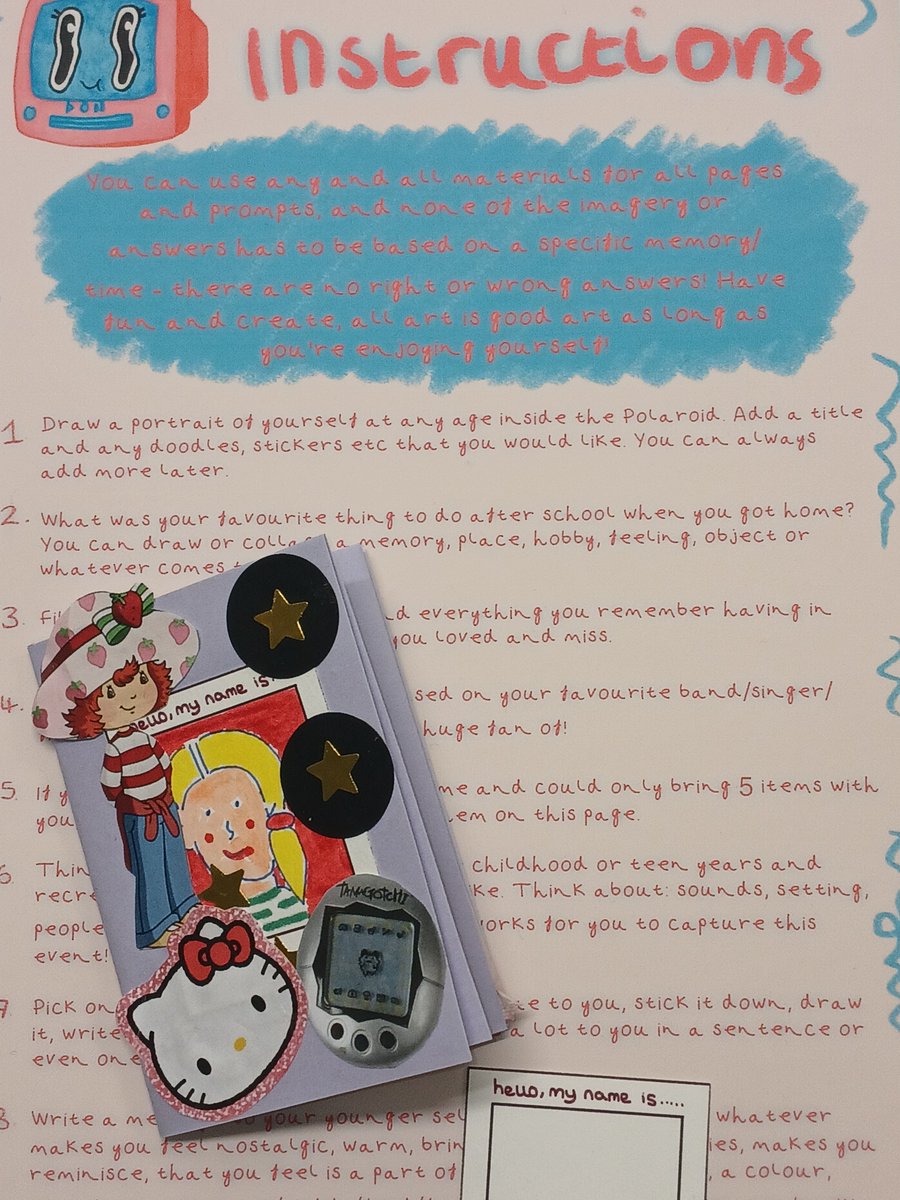 Instructions
You can use any and all materials for all pages
and prompts, and none of the imagery or
answers has to be based on a specific memory/
time - there are no right or wrong answers! Have
fun and create, all art is good art as long as
you're enjoying yourself!
1 Draw a portrait of yourself at any age inside the Polaroid. Add a title
and any doodles, stickers etc that you would like. You can always
add more later.
2. What was your favourite thing to do after school when you got home?
You can draw or collage a memory, place, hobby, feeling, object or
whatever comes
3. everything you remember having in
you loved and miss.
4. based on your favourite band/singer/
huge fan of!
5. If me and could only bring 5 items with
you them on this page.
6. Think childhood or teen years and
like. Think about: sounds, setting,
people works for you to capture this
event!
7. Pick to you, stick it down, draw
it, write a lot to you in a sentence or
even one
8. Write a your younger whatever
makes you feel nostalgic, warm, makes you
reminisce, that you feel is a part of a colour,
hello, my name is
TAMAGOTCHI
hello, my name is.....